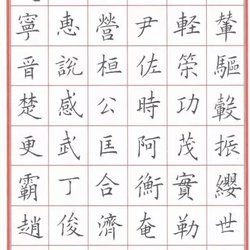 輦驅轂振纓世
軽策功茂實勒
尹佐時阿衡奄
營桓公匡合濟
惠說感武丁俊
寧晉楚更霸趙